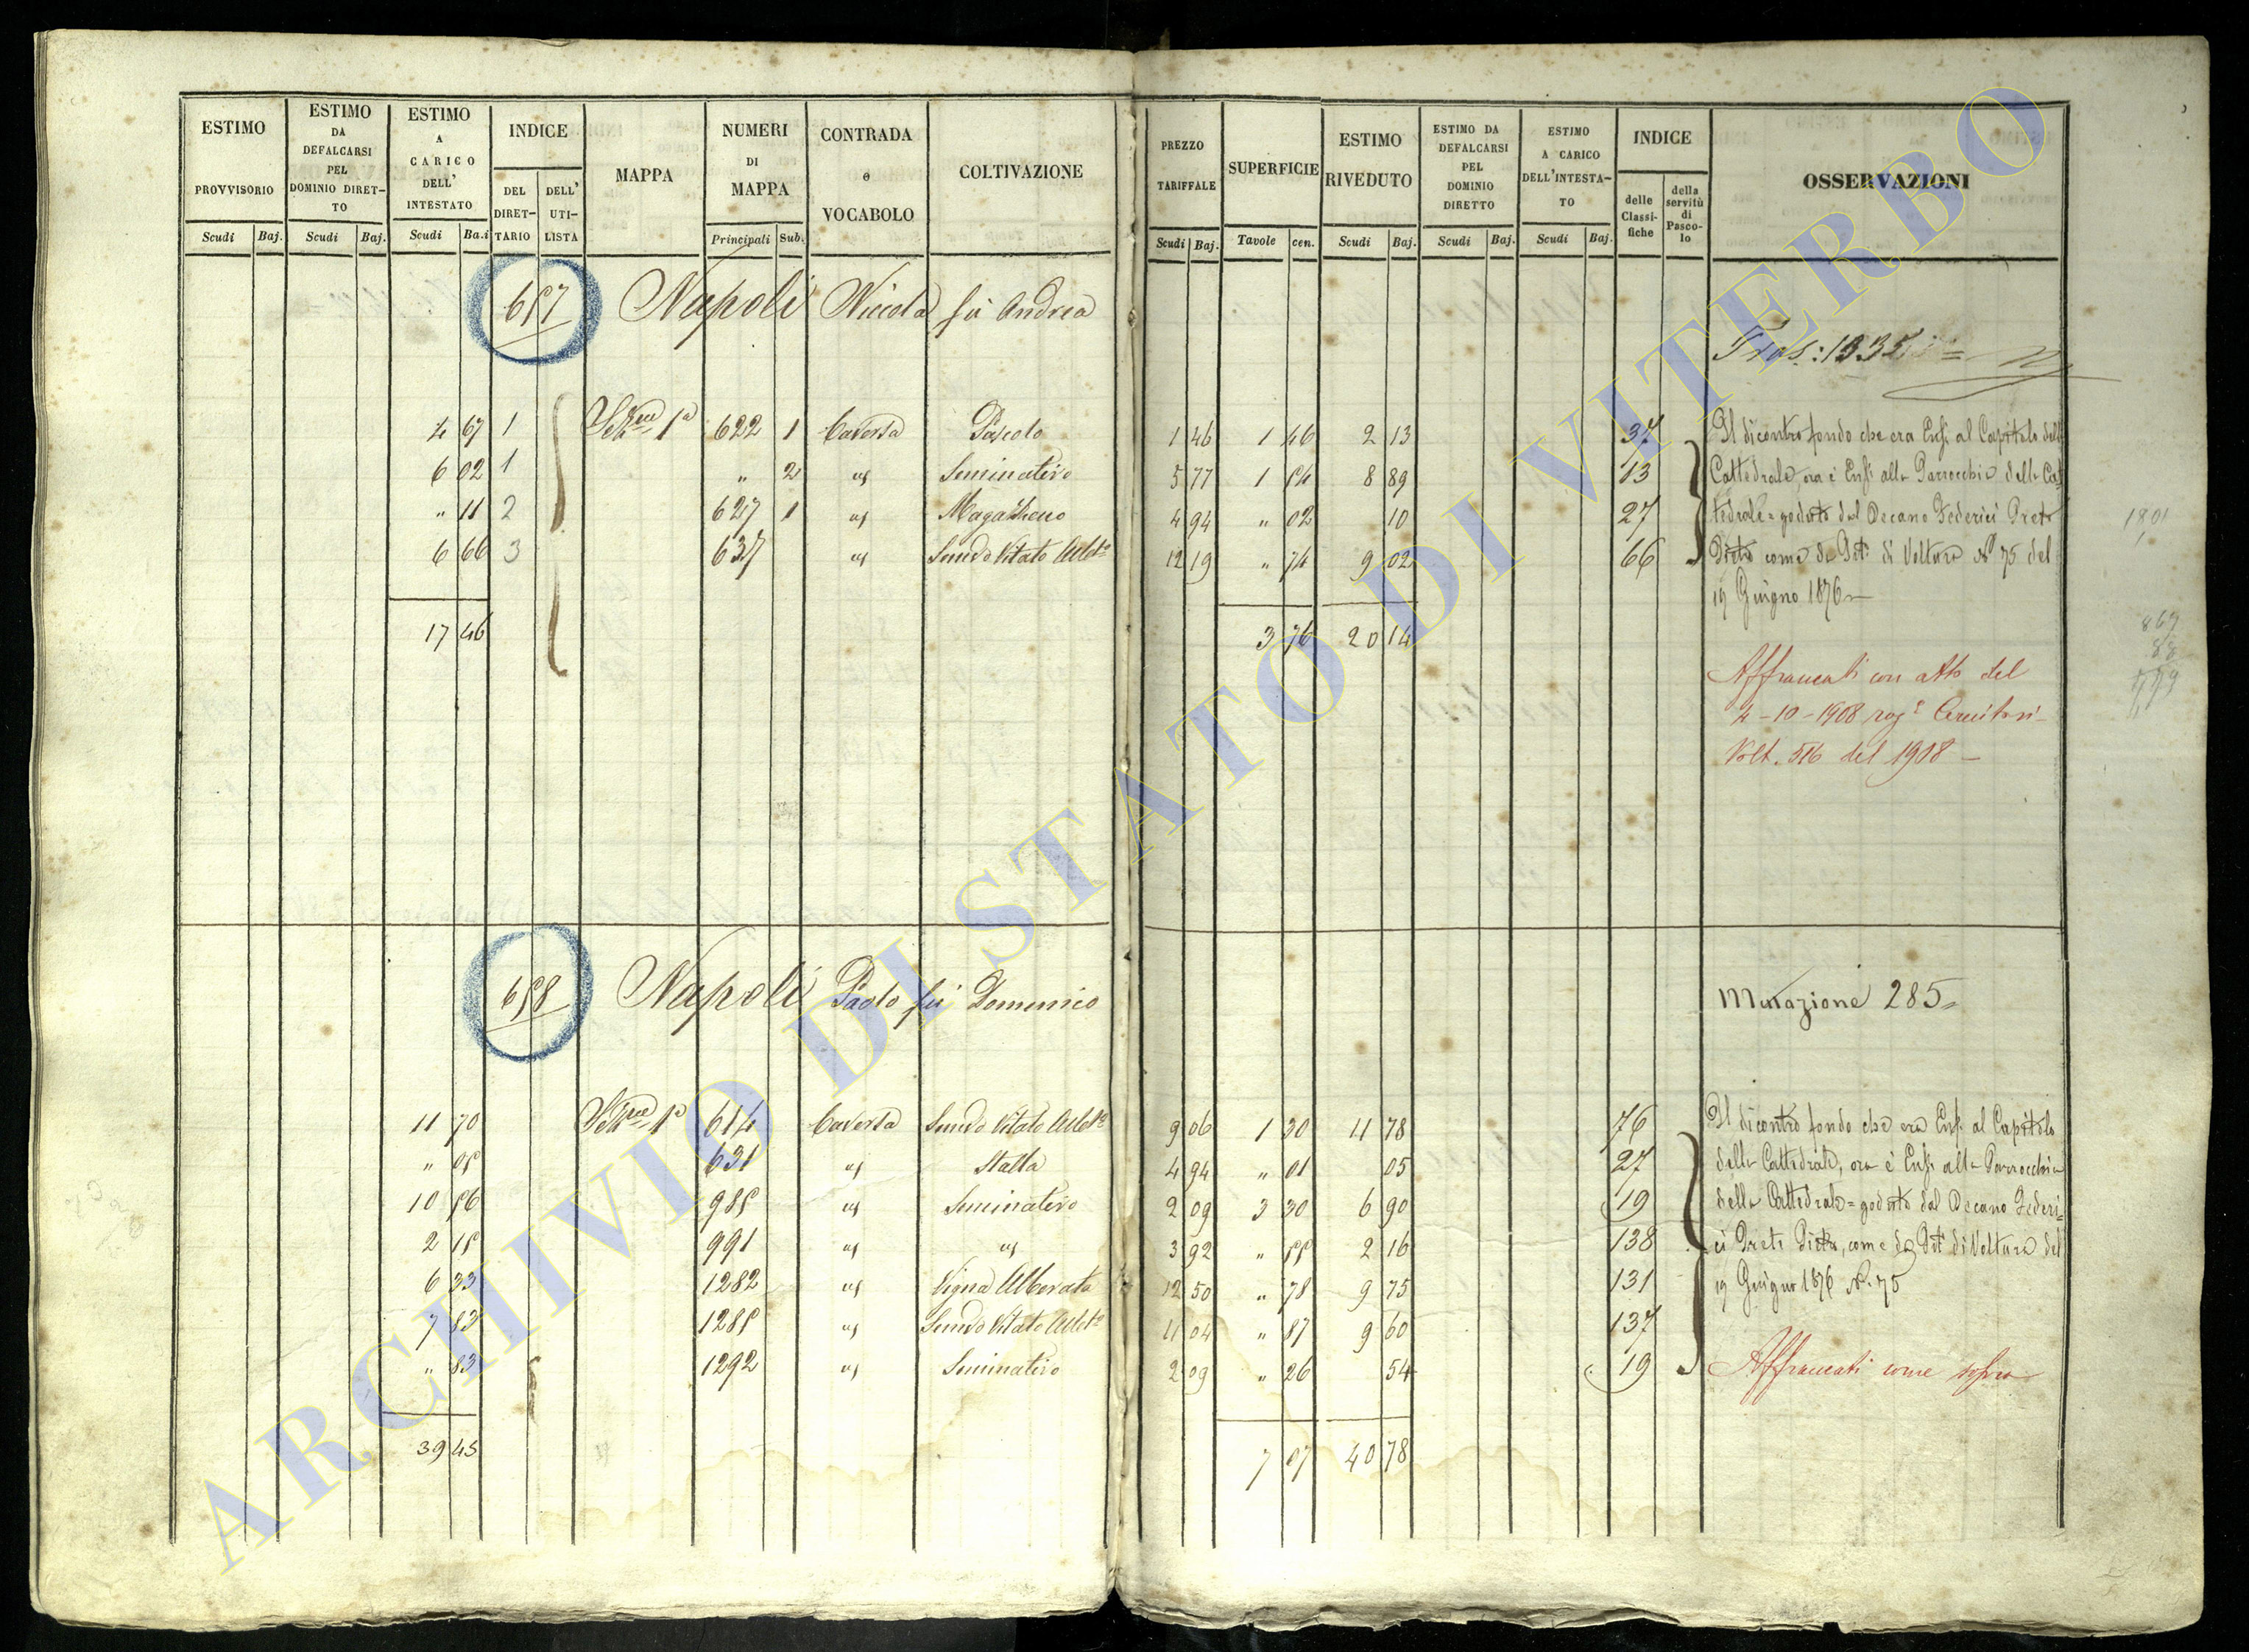 ESTIMO PROVVISORIO
ESTIMO DA DEFALCARSI PEL DOMINIO DIRET-TO
ESTIMO A CARICO DELL' INTESTATO
INDICE
DEL DIRET-TARIO
DELL' UTI-LISTA
MAPPA
NUMERI DI MAPPA
CONTRADA o VOCABOLO
COLTIVAZIONE
Scudi Baj. Scudi Baj. Scudi Ba.i Principali Sub.
PREZZO TARIFFALE
SUPERFICIE
ESTIMO RIVEDUTO
ESTIMO DA DEFALCARSI PEL DOMINIO DIRETTO
ESTIMO A CARICO DELL'INTESTA-TO
INDICE
delle Classi-fiche
della servitù di Pasco-lo
OSSERVAZIONI
Scudi Baj. Tavole cen. Scudi Baj. Scudi Baj. Scudi Baj.
657 Napoli Niccola fù Andrea
Tras.: 1335
4 67 1 Sezne 1a 622 1 Caversa Pascolo 1 46 1 46 2 13 37
6 02 1 " 2 " Seminativo 5 77 1 54 8 89 13
" 11 2 627 1 " Magazzeno 4 94 " 02 10 27
6 66 3 637 " Semvo Vitato Albto 12 19 " 74 9 02 66
17 46 3 76 20 14
Il dicontro fondo che era Enfi. al Capitolo della
Cattedrale, ora è Enfi. alla Parrocchia della Cat-
tedrale = goduto dal Decano Federici Prete
Pietro come da Dit. di Voltura No 75 del
19 Giugno 1876 =
1801
869
88
779
Affrancati con atto del
4 - 10 - 1908 rog.
Volt. 516 del 1908 -
658 Napoli Paolo fù Domenico
Mutazione 285 =
11 70 Sezne 1a 614 Caversa Semvo Vitato Albto 9 06 1 30 11 78 76
" 05 631 " Stalla 4 94 " 01 05 27
10 56 985 " Seminativo 2 09 3 30 6 90 19
2 15 991 " " 3 92 " 55 2 16 138
6 33 1282 " Vigna Alberata 12 50 " 78 9 75 131
7 83 1285 " Semvo Vitato Albto 11 04 " 87 9 60 137
" 83 1292 " Seminativo 2 09 " 26 54 19
39 45 7 07 40 78
Il dicontro fondo che era Enfi. al Capitolo
della Cattedrale, ora è Enfi. alla Parrocchia
della Cattedrale = goduto dal Decano Federi=
ci Prete Pietro, come da Dit. di Voltura del
19 Giugno 1876 No. 75
Affrancati come sopra
ARCHIVIO DI STATO DI VITERBO